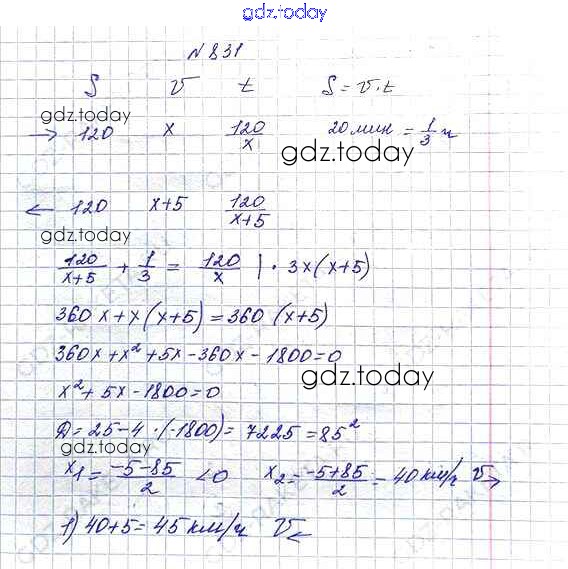 gdz.today
N 831
S v t S = v · t
gdz.today
→ 120 x 120/x 20 мин = 1/3 ч
gdz.today
← 120 x+5 120/(x+5)
gdz.today
120/(x+5) + 1/3 = 120/x | · 3x(x+5)
360x + x(x+5) = 360 (x+5)
360x + x² + 5x - 360x - 1800 = 0
x² + 5x - 1800 = 0
gdz.today
D = 25 - 4 · (-1800) = 7225 = 85²
gdz.today
x₁ = (-5-85)/2 < 0 x₂ = (-5+85)/2 = 40 км/ч v→
1) 40 + 5 = 45 км/ч v←